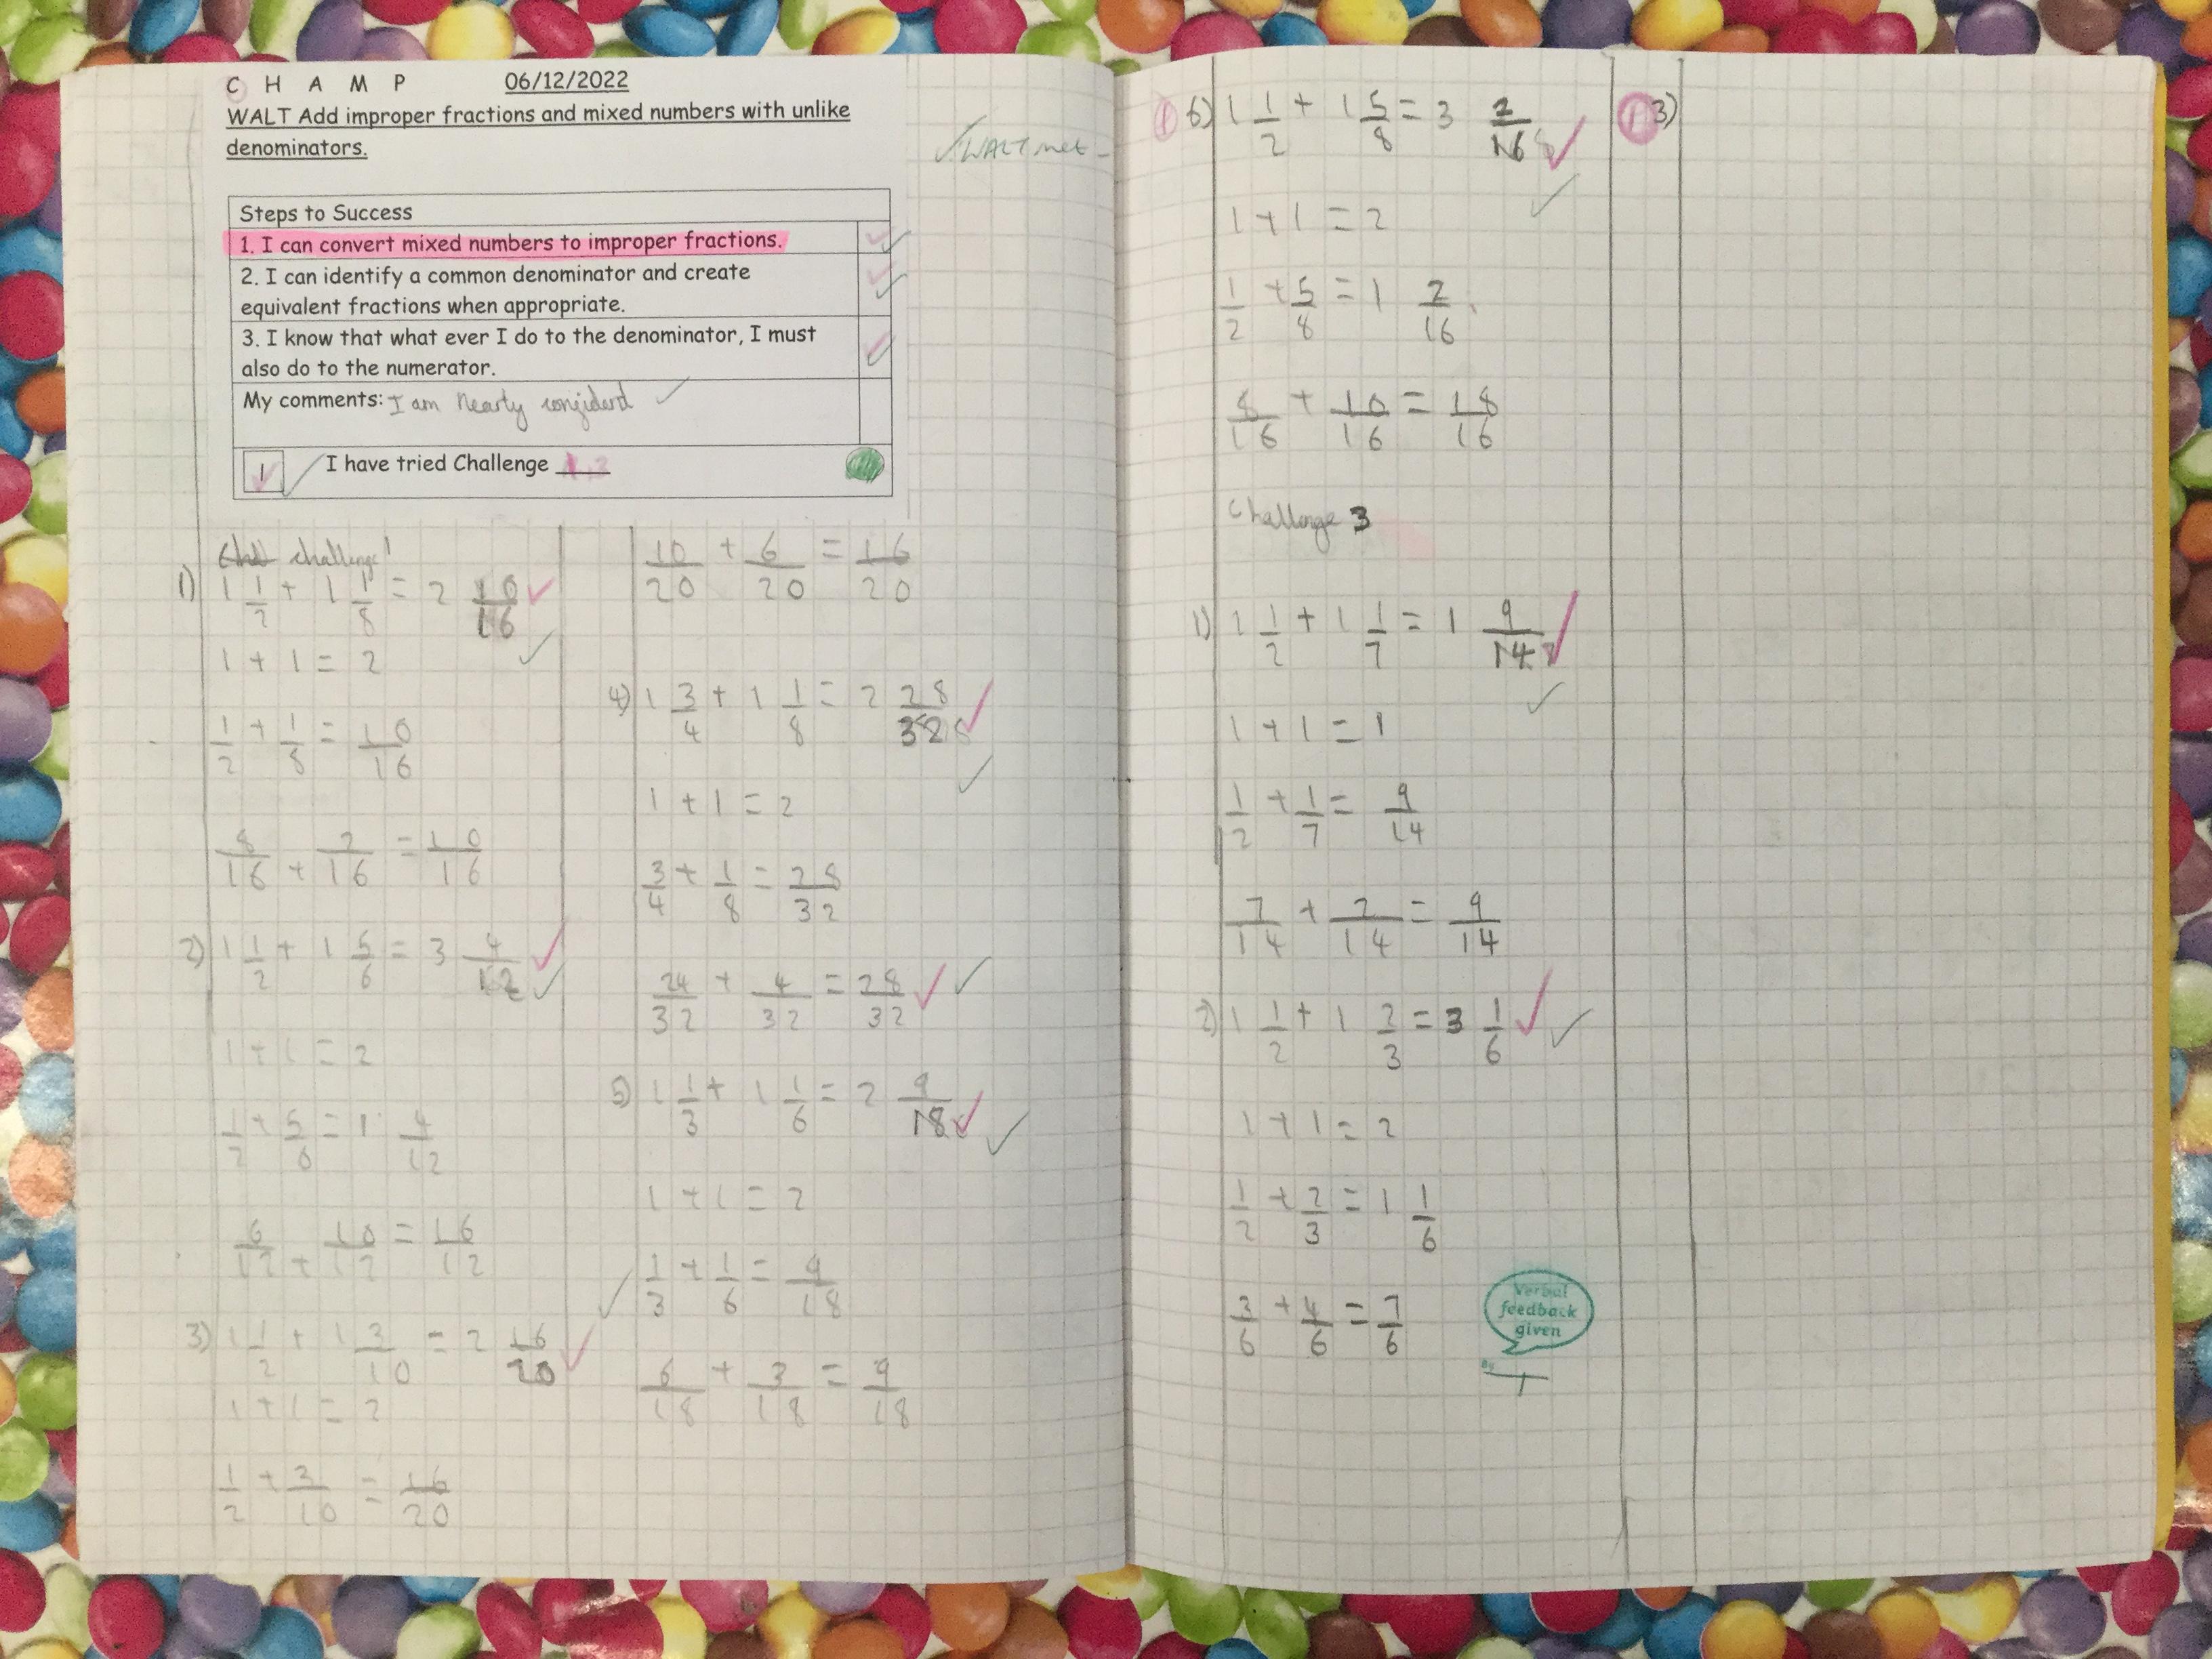 C H A M P 06/12/2022
WALT Add improper fractions and mixed numbers with unlike
denominators.
WALT met
Steps to Success
1. I can convert mixed numbers to improper fractions.
2. I can identify a common denominator and create
equivalent fractions when appropriate.
3. I know that what ever I do to the denominator, I must
also do to the numerator.
My comments: I am nearly
1 I have tried Challenge
challenge 1
1) 1 1/2 + 1 1/8 = 2 10/16
1 + 1 = 2
1/2 + 1/8 = 10/16
8/16 + 2/16 = 10/16
2) 1 1/2 + 1 5/6 = 3 4/12
1 + 1 = 2
1/2 + 5/6 = 1 4/12
6/12 + 10/12 = 16/12
3) 1 1/2 + 1 3/10 = 2 16/20
1 + 1 = 2
1/2 + 3/10 = 16/20
10/20 + 6/20 = 16/20
4) 1 3/4 + 1 1/8 = 2 28/32
1 + 1 = 2
3/4 + 1/8 = 28/32
24/32 + 4/32 = 28/32
5) 1 1/3 + 1 1/6 = 2 9/18
1 + 1 = 2
1/3 + 1/6 = 9/18
6/18 + 3/18 = 9/18
6) 1 1/2 + 1 5/8 = 3 2/16
1 + 1 = 2
1/2 + 5/8 = 1 2/16
8/16 + 10/16 = 18/16
Challenge 3
1) 1 1/2 + 1 1/7 = 1 9/14
1 + 1 = 1
1/2 + 1/7 = 9/14
7/14 + 2/14 = 9/14
2) 1 1/2 + 1 2/3 = 3 1/6
1 + 1 = 2
1/2 + 2/3 = 1 1/6
3/6 + 4/6 = 7/6
Verbal
feedback
given
By
3)